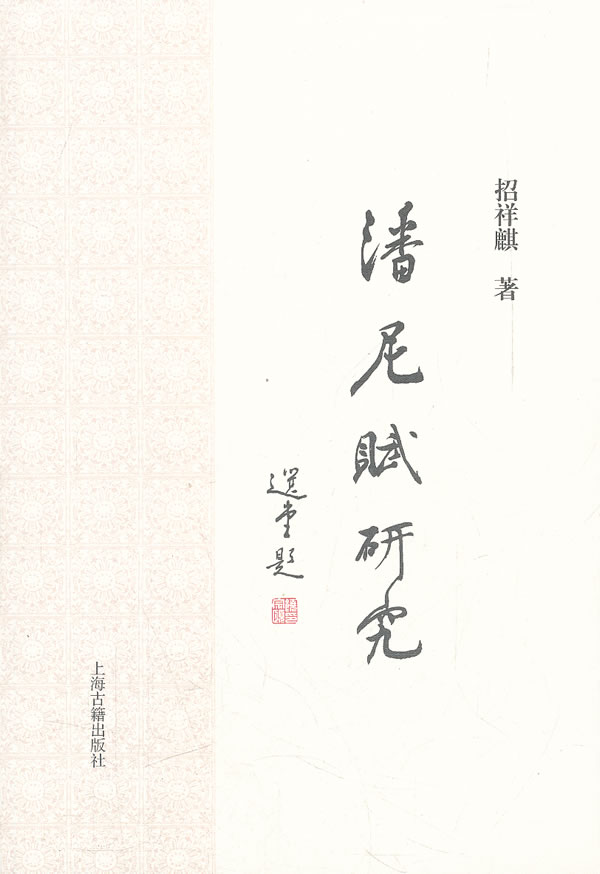 招祥麒 著
潘尼賦研究
選堂題
上海古籍出版社